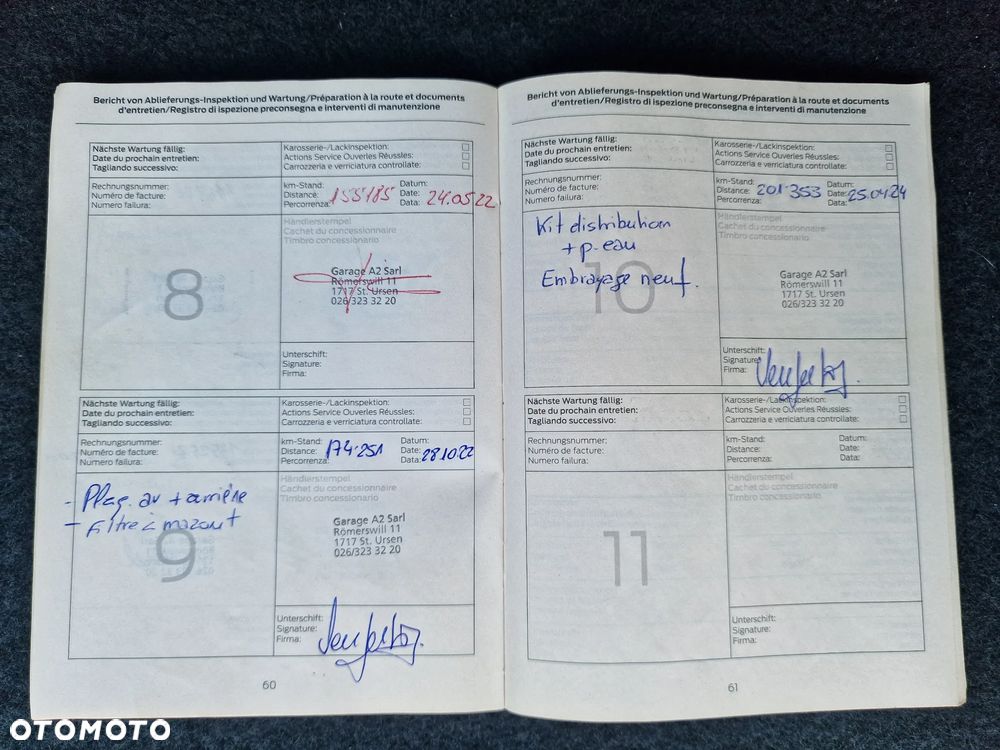 Bericht von Ablieferungs-Inspektion und Wartung/Préparation à la route et documents
d'entretien/Registro di ispezione preconsegna e interventi di manutenzione
Nächste Wartung fällig:
Date du prochain entretien:
Tagliando successivo:
Karosserie-/Lackinspektion:
Actions Service Ouveries Réussles:
Carrozzeria e verriciatura controllate:
Rechnungsnummer:
Numéro de facture:
Numero failura:
km-Stand:
Distance:
Percorrenza:
155185
Datum:
Date:
Data:
24.05.22
8
Händlerstempel
Cachet du concessionnaire
Timbro concessionario
Garage A2 Sarl
Römerswill 11
1717 St. Ursen
026/323 32 20
Unterschift:
Signature:
Firma:
Nächste Wartung fällig:
Date du prochain entretien:
Tagliando successivo:
Karosserie-/Lackinspektion:
Actions Service Ouveries Réussles:
Carrozzeria e verriciatura controllate:
Rechnungsnummer:
Numéro de facture:
Numero failura:
km-Stand:
Distance:
Percorrenza:
174.251
Datum:
Date:
Data:
28.10.22
- Plaq. av + arrière
- Filtre à mazout
9
Händlerstempel
Cachet du concessionnaire
Timbro concessionario
Garage A2 Sarl
Römerswill 11
1717 St. Ursen
026/323 32 20
Unterschift:
Signature:
Firma:
60
Bericht von Ablieferungs-Inspektion und Wartung/Préparation à la route et documents
d'entretien/Registro di ispezione preconsegna e interventi di manutenzione
Nächste Wartung fällig:
Date du prochain entretien:
Tagliando successivo:
Karosserie-/Lackinspektion:
Actions Service Ouveries Réussles:
Carrozzeria e verriciatura controllate:
Rechnungsnummer:
Numéro de facture:
Numero failura:
km-Stand:
Distance:
Percorrenza:
201.353
Datum:
Date:
Data:
25.04.24
Kit distribution
+ p. eau
Embrayage neuf.
10
Händlerstempel
Cachet du concessionnaire
Timbro concessionario
Garage A2 Sarl
Römerswill 11
1717 St. Ursen
026/323 32 20
Unterschift:
Signature:
Firma:
Nächste Wartung fällig:
Date du prochain entretien:
Tagliando successivo:
Karosserie-/Lackinspektion:
Actions Service Ouveries Réussles:
Carrozzeria e verriciatura controllate:
Rechnungsnummer:
Numéro de facture:
Numero failura:
km-Stand:
Distance:
Percorrenza:
Datum:
Date:
Data:
11
Händlerstempel
Cachet du concessionnaire
Timbro concessionario
Unterschift:
Signature:
Firma:
61
OTOMOTO